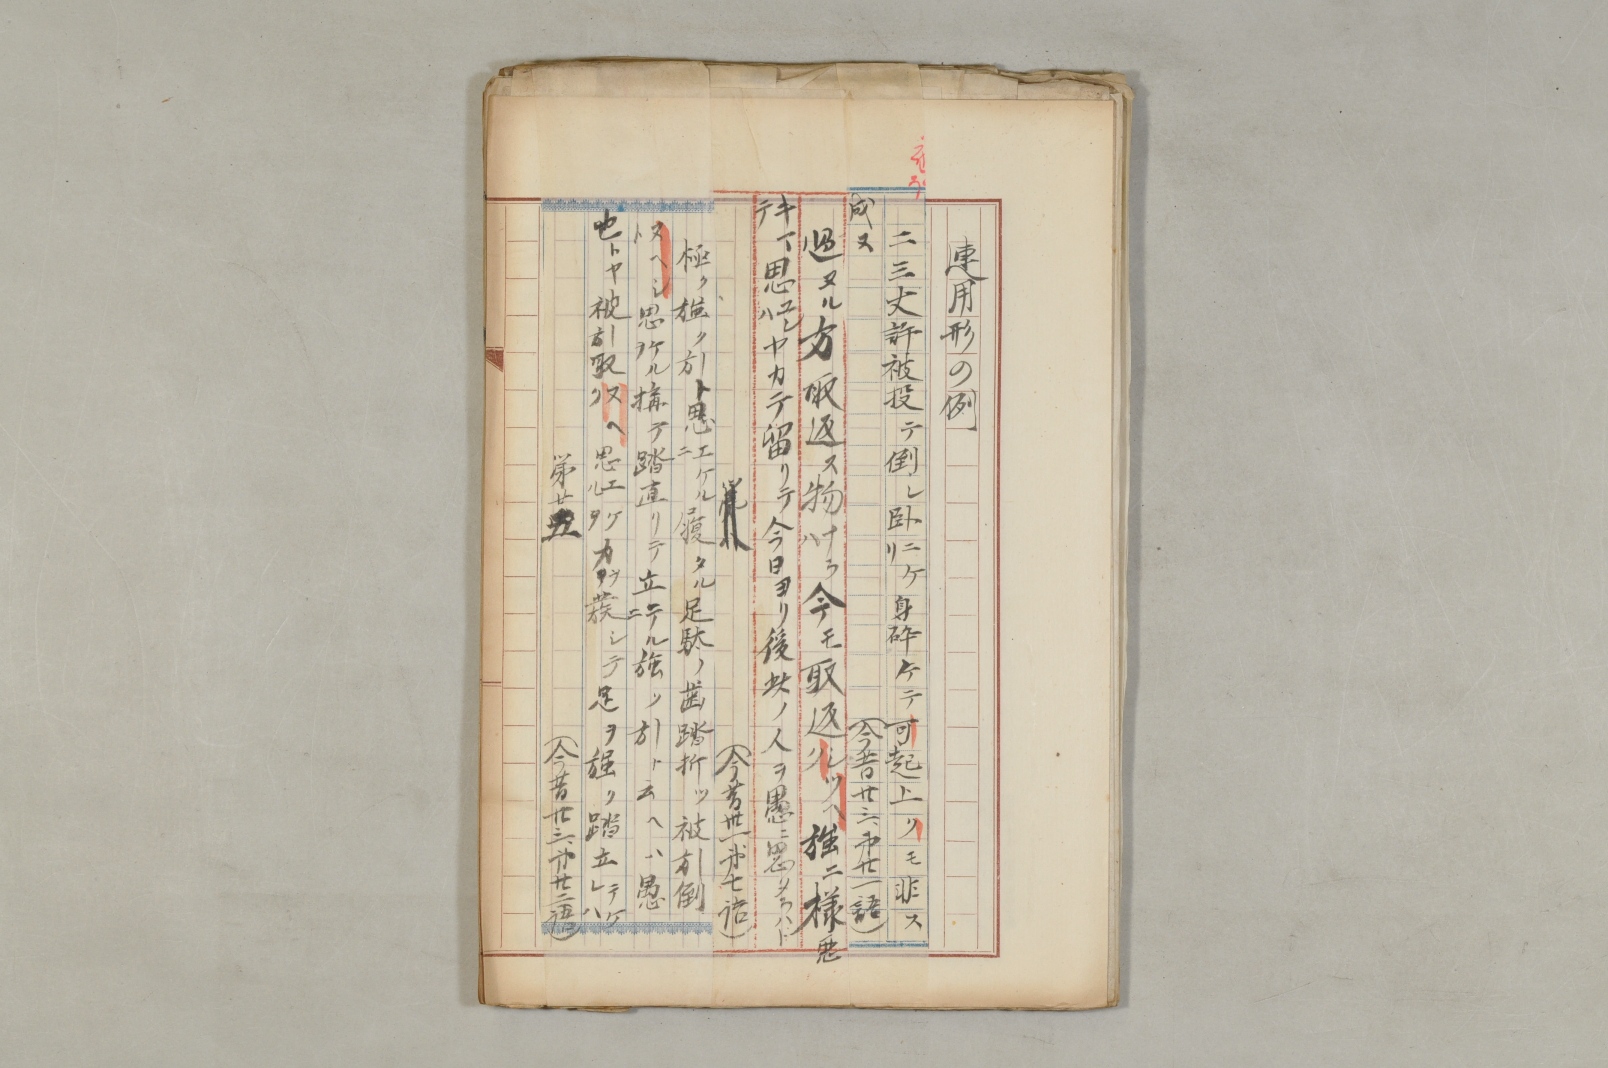 連用形の例
二三丈許被投テ倒レ臥ニケリ身砕ケテ可起上クモ非ス
成ヌ
(今昔廿三、第廿一語)
過ヌル方取返ス物ナラハ今モ取返シツヘ強ニ様悪
キマテ思エハヤカテ留リテ今日ヨリ後此ノ人ヲ愚ニ思
(今昔卅一第七語)
極ク強ク引ト思エケルニ履タル足駄ノ歯踏折ツ被引倒
ヌヘシト思ケルヲ構テ踏直リテ立テルニ強ク引ト云ヘハ愚
也トヤ被引取ヌヘク思エケルヲ力ヲ発シテ足ヲ強ク踏立テケレハ
第廿
(今昔廿三、第廿二語)